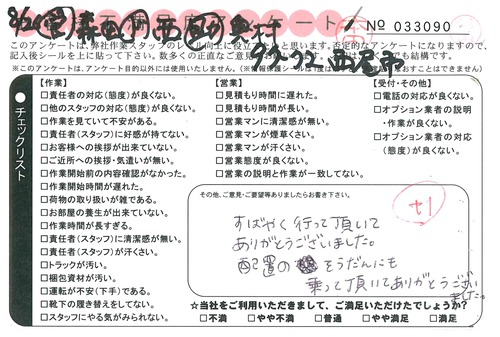 アンケート
№ 033090
このアンケートは、弊社作業スタッフのレベル向上に役立
否定的なアンケートになりますので、
記入後シールを上に貼って下さい。
でも結構です。
※このアンケートは、アンケート目的以外には使用いたしません。
チェックリスト
【作業】
□責任者の対応(態度)が良くない。
□他のスタッフの対応(態度)が良くない。
□作業を見ていて不安がある。
□責任者(スタッフ)に好感が持てない。
□お客様への挨拶が出来ていない。
□ご近所への挨拶・気遣いが無い。
□作業開始前の内容確認がなかった。
□作業開始時間が遅れた。
□荷物の取り扱いが雑である。
□お部屋の養生が出来ていない。
□作業時間が長すぎる。
□責任者(スタッフ)に清潔感が無い。
□責任者(スタッフ)が汗くさい。
□トラックが汚い。
□梱包資材が汚い。
□運転が不安(下手)である。
□靴下の履き替えをしてない。
□スタッフにやる気がみられない。
【営業】
□見積もり時間に遅れた。
□見積もり時間が長い。
□営業マンに清潔感が無い。
□営業マンが煙草くさい。
□営業マンが汗くさい。
□営業態度が良くない。
□営業の説明と作業が一致してない。
【受付・その他】
□電話の対応が良くない。
□オプション業者の説明
・作業が良くない。
□オプション業者の対応
(態度)が良くない。
その他、ご意見・ご要望等ありましたらお書き下さい。
すばやく行って頂いて
ありがとうございました。
配置の そうだんにも
乗って頂いてありがとうござい
ました。
☆当社をご利用いただきまして、ご満足いただけたでしょうか?
□不満 □やや不満 □普通 □やや満足 □満足